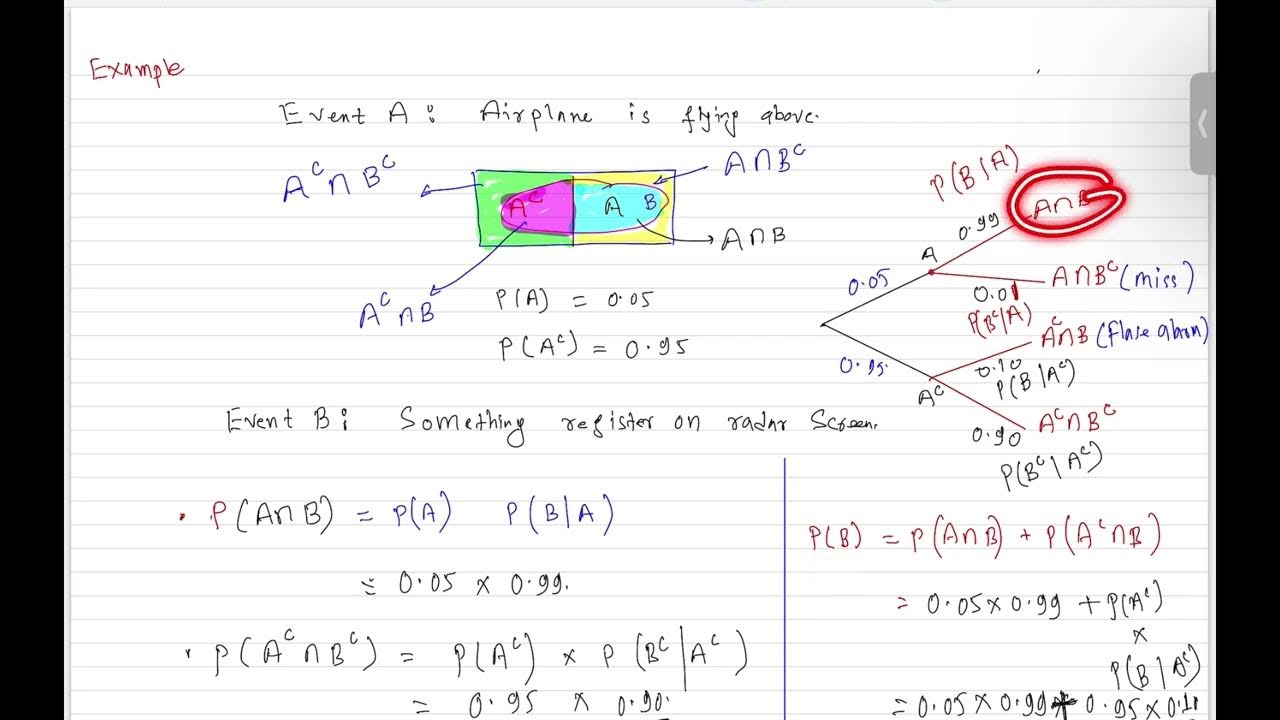 Example
Event A : Airplane is flying above.
A^C ∩ B^C
A ∩ B^C
A^C
A
B
A ∩ B
A^C ∩ B
P(A) = 0.05
P(A^C) = 0.95
P(B|A)
A ∩ B
0.99
A
0.05
0.01
A ∩ B^C (miss)
P(B^C|A)
A^C ∩ B (Flase alarm)
0.95
0.10
P(B|A^C)
A^C
0.90
A^C ∩ B^C
P(B^C|A^C)
Event B : Something register on radar Screen.
• P(A∩B) = P(A) P(B|A)
= 0.05 × 0.99.
• P(A^C ∩ B^C) = P(A^C) × P(B^C|A^C)
= 0.95 × 0.90.
P(B) = P(A∩B) + P(A^C∩B)
= 0.05 × 0.99 + P(A^C)
×
P(B|A^C)
= 0.05 × 0.99 + 0.95 × 0.10